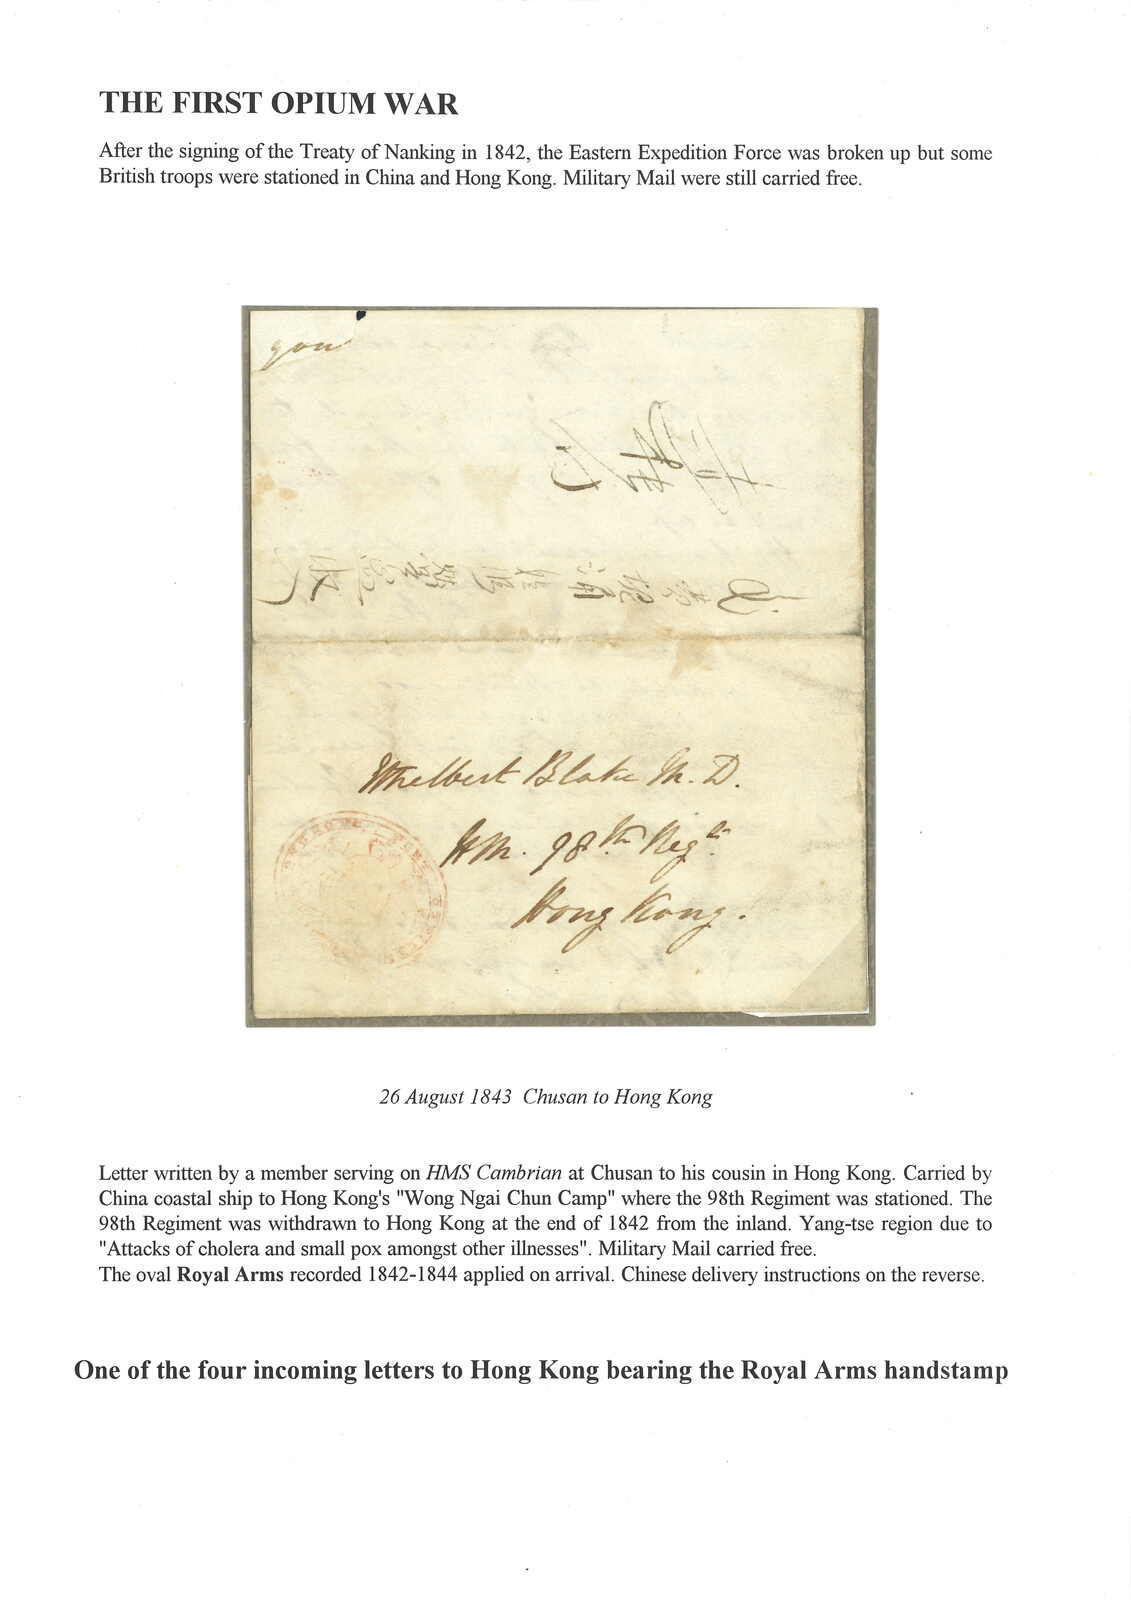 THE FIRST OPIUM WAR
After the signing of the Treaty of Nanking in 1842, the Eastern Expedition Force was broken up but some
British troops were stationed in China and Hong Kong. Military Mail were still carried free.
you
Ethelbert Blake M. D.
HM. 98th Regt.
Hong Kong.
26 August 1843 Chusan to Hong Kong
Letter written by a member serving on HMS Cambrian at Chusan to his cousin in Hong Kong. Carried by
China coastal ship to Hong Kong's "Wong Ngai Chun Camp" where the 98th Regiment was stationed. The
98th Regiment was withdrawn to Hong Kong at the end of 1842 from the inland. Yang-tse region due to
"Attacks of cholera and small pox amongst other illnesses". Military Mail carried free.
The oval Royal Arms recorded 1842-1844 applied on arrival. Chinese delivery instructions on the reverse.
One of the four incoming letters to Hong Kong bearing the Royal Arms handstamp